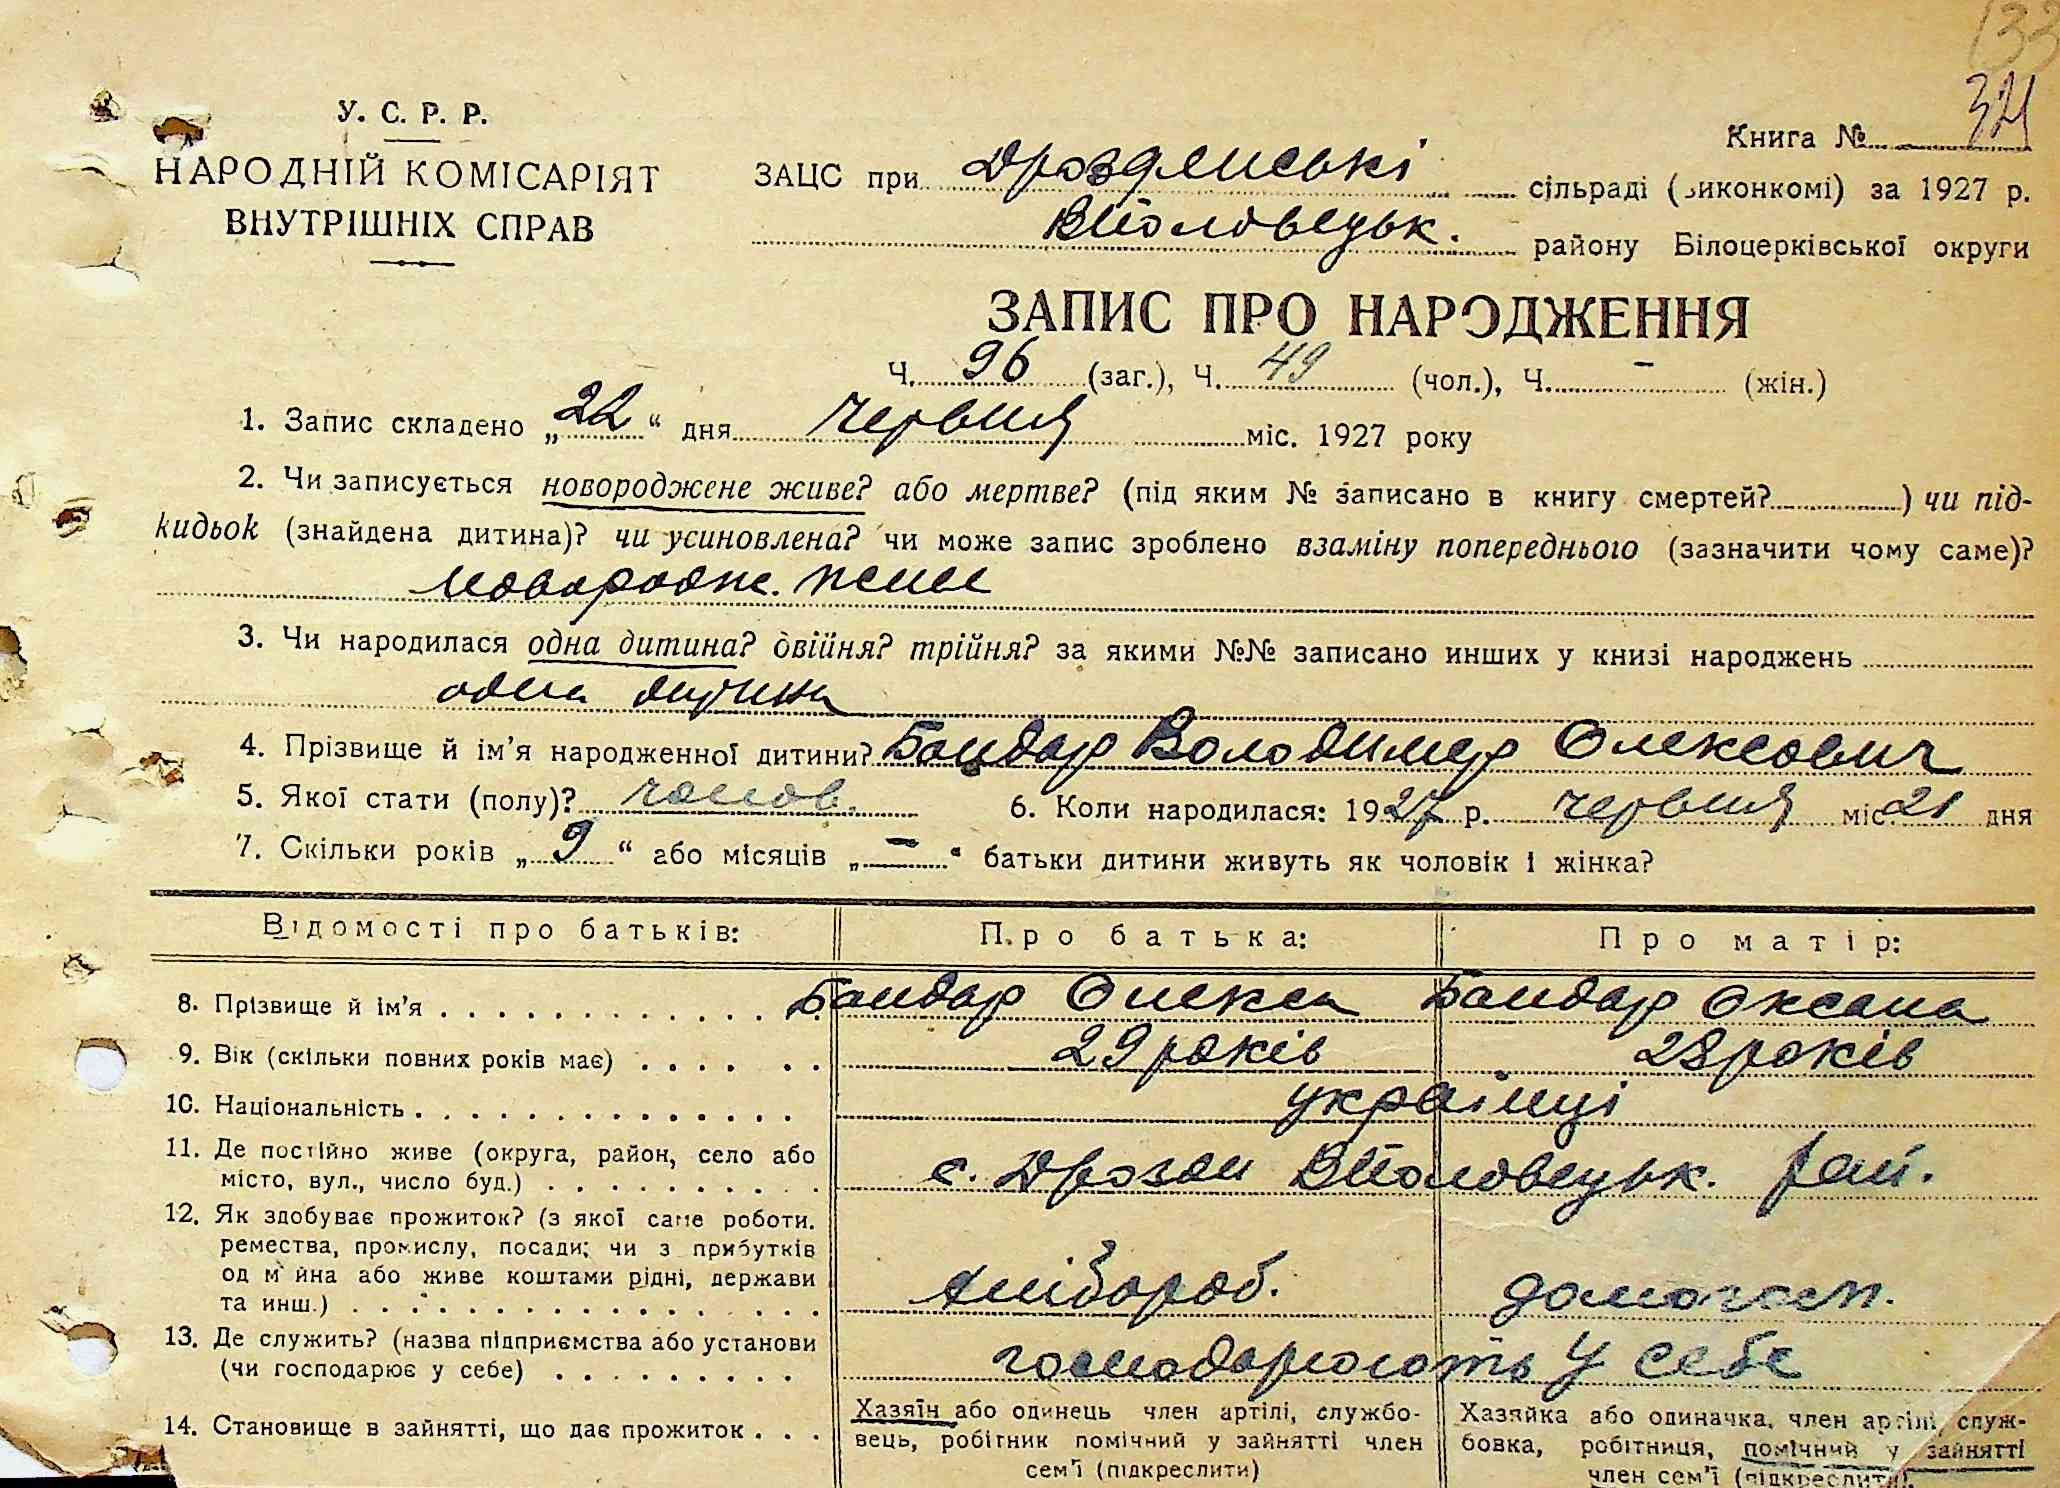 133
У. С. Р. Р.
Книга № 321
НАРОДНІЙ КОМІСАРІЯТ
ВНУТРІШНІХ СПРАВ
ЗАЦС при Дроздянські сільраді (виконкомі) за 1927 р.
ВПоловецьк. району Білоцерківської округи
ЗАПИС ПРО НАРОДЖЕННЯ
Ч. 96 (заг.), Ч. 49 (чол.), Ч. - (жін.)
1. Запис складено „22“ дня червня міс. 1927 року
2. Чи записується новороджене живе? або мертве? (під яким № записано в книгу смертей? ) чи під-
кидьок (знайдена дитина)? чи усиновлена? чи може запис зроблено взаміну попереднього (зазначити чому саме)?
новородж. живе
3. Чи народилася одна дитина? двійня? трійня? за якими №№ записано инших у книзі народжень
одна дитина
4. Прізвище й ім'я народженної дитини? Бондар Володимер Олексович
5. Якої стати (полу)? чолов. 6. Коли народилася: 1927 р. червня міс. 21 дня
7. Скільки років „9“ або місяців „-“ батьки дитини живуть як чоловік і жінка?
Відомості про батьків: Про батька: Про матір:
8. Прізвище й ім'я . . . . . . . . . . . . . Бондар Олекса Бондар Оксана
9. Вік (скільки повних років має) . . . . . . 29 років 28 років
10. Національність . . . . . . . . . . . . . . українці
11. Де постійно живе (округа, район, село або
місто, вул., число буд.) . . . . . . . . . . с. Дрозди ВПоловецьк. рай.
12. Як здобуває прожиток? (з якої саме роботи.
ремества, промислу, посади; чи з прибутків
од майна або живе коштами рідні, держави
та инш.) . . . . . . . . . . . . . . . . хлібороб. домогосп.
13. Де служить? (назва підприємства або установи
(чи господарює у себе) . . . . . . . . . господарюють у себе
14. Становище в зайнятті, що дає прожиток . . .
Хазяїн або одинець член артілі, службо-
вець, робітник помічний у зайнятті член
сем'ї (підкреслити)
Хазяйка або одиначка, член артілі служ-
бовка, робітниця, помічний у зайнятті
член сем'ї (підкреслити).